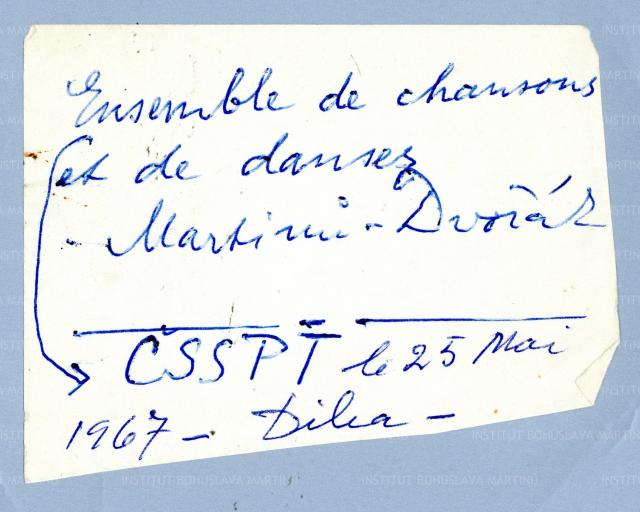 Ensemble de chansons
et de danses
- Martinů - Dvořák
ČSSPT le 25 Mai
1967 - Dilia -
INSTITUT BOHUSLAVA MARTINŮ